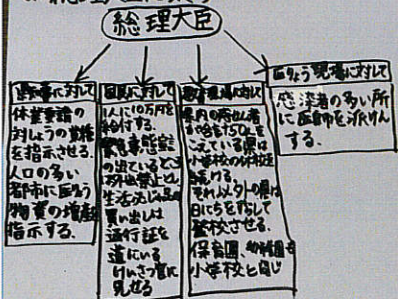 総理大臣
知事に対して
休業要請の
対しょうの業種
を指示させる.
人口の多い
都市に医りょう
物資の増産
指示する.
国民に対して
1人に10万円を
給付する.
緊急事態宣言
の出ているところ
は外出禁止とし
生活必じゅ品の
買い出しは
通行証を
道にいる
けいさつ官に
見せる
教育現場に対して
県内の感せん者
が合計50人を
こえている県は
小学校の休校を
続ける.
それ以外の県は
日にちをずらして
登校させる.
保育園、幼稚園も
小学校と同じ
医りょう現場に対して
感染者の多い所
に医師を派けん
する.